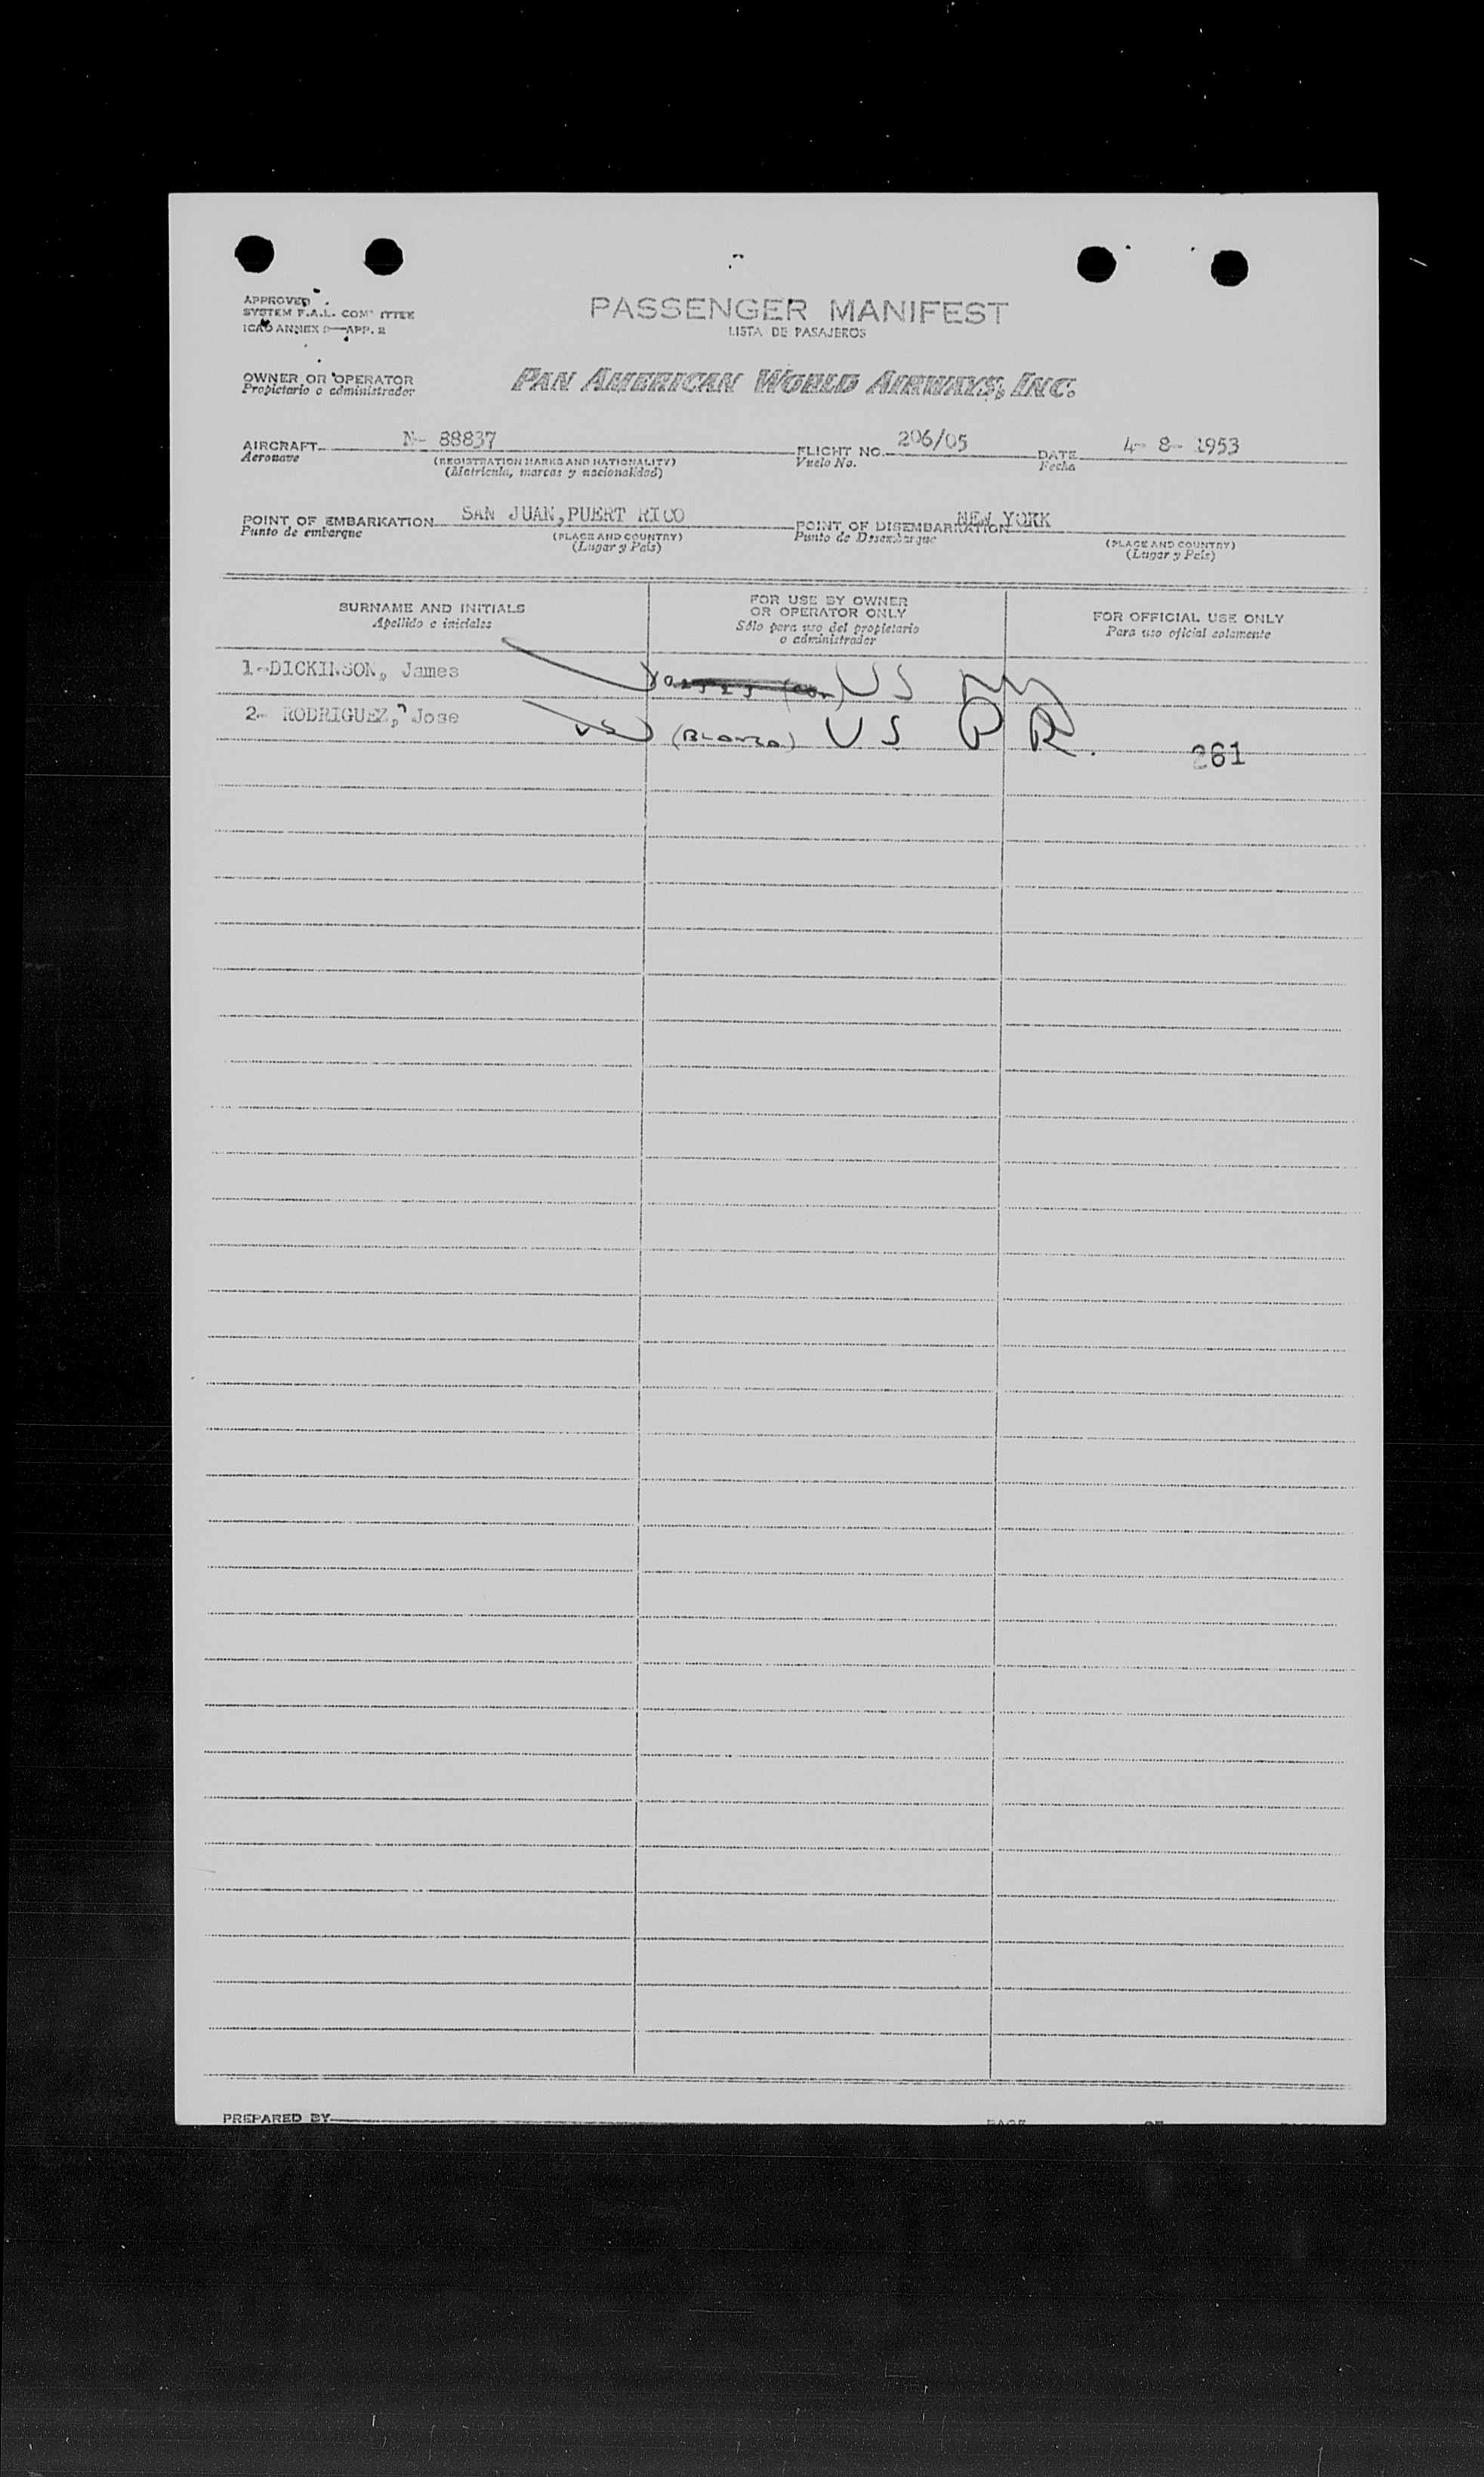 APPROVED
SYSTEM F.A.L. COM ITTEE
ICAO ANNEX 9—APP. 2
PASSENGER MANIFEST
LISTA DE PASAJEROS
OWNER OR OPERATOR
Propietario o administrador
PAN AMERICAN WORLD AIRWAYS, INC.
AIRCRAFT N- 88837 FLIGHT NO. 206/05 DATE 4- 8- 1953
Aeronave (REGISTRATION MARKS AND NATIONALITY) Vuelo No. Fecha
(Matricula, marcas y nacionalidad)
POINT OF EMBARKATION SAN JUAN, PUERT RICO POINT OF DISEMBARKATION NEW YORK
Punto de embarque (PLACE AND COUNTRY) Punto de Desembarque (PLACE AND COUNTRY)
(Lugar y País) (Lugar y País)
SURNAME AND INITIALS
Apellido e iniciales
FOR USE BY OWNER
OR OPERATOR ONLY
Sólo para uso del propietario
o administrador
FOR OFFICIAL USE ONLY
Para uso oficial solamente
1-DICKINSON, James US
2- RODRIGUEZ, Jose (BLANZA) US PR.
261
PREPARED BY PAGE OF